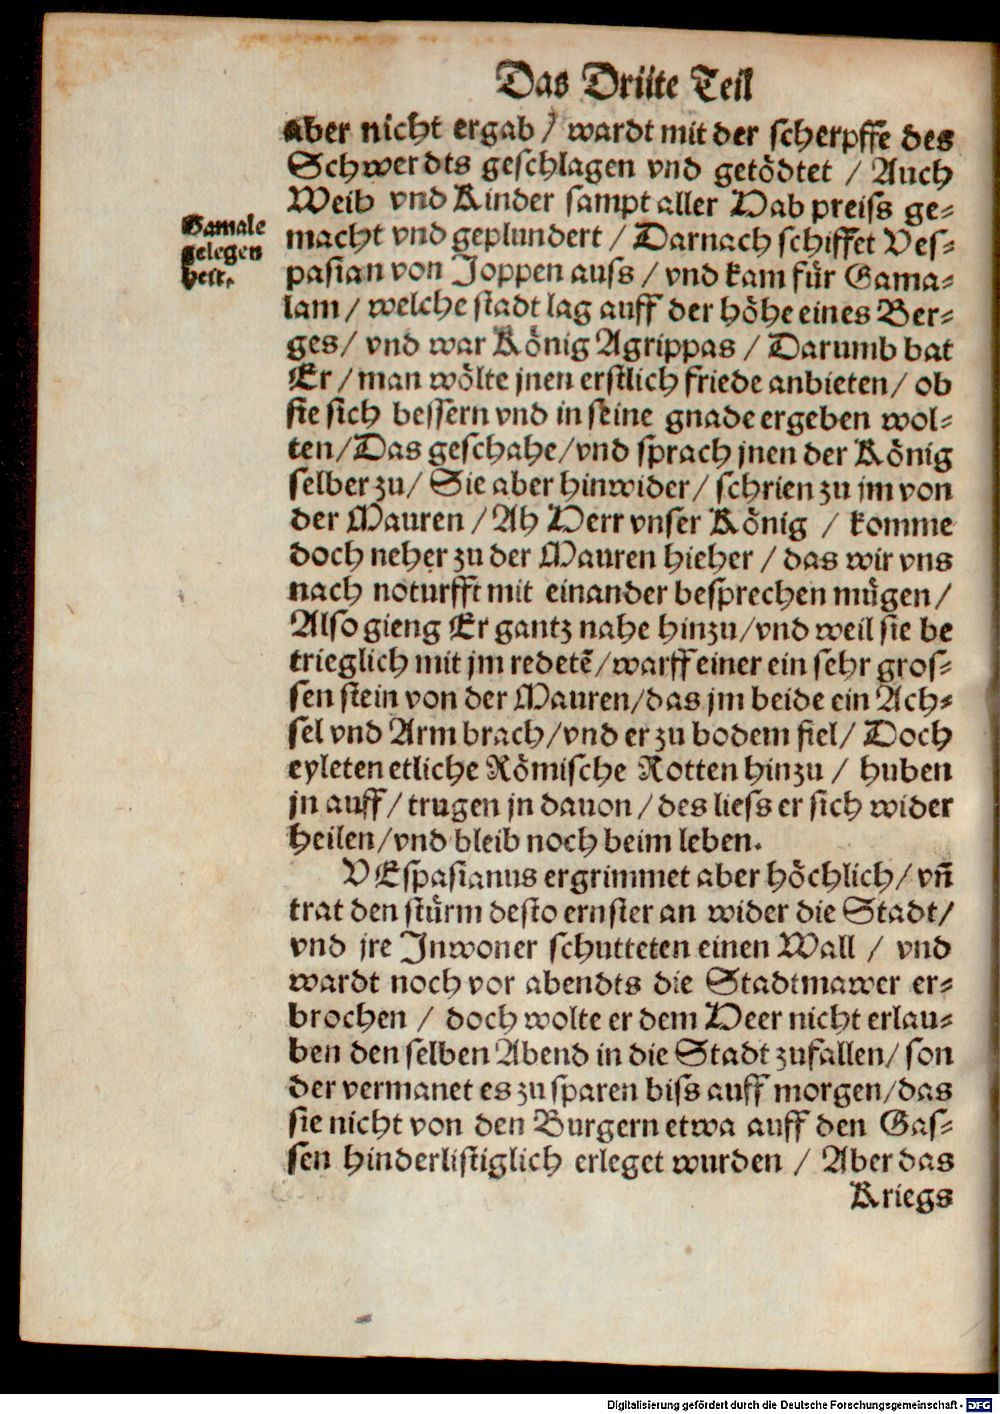 Das Drüte Teil
aber nicht ergab / wardt mit der scherpffe des
Schwerdts geschlagen vnd getödtet / Auch
Weib vnd Kinder sampt aller Hab preiss ge-
macht vnd geplundert / Darnach schiffet Ves-
pasian von Joppen auss / vnd kam für Gama-
lam / welche stadt lag auff der höhe eines Ber-
ges / vnd war König Agrippas / Darumb bat
Er / man wölte jnen erstlich friede anbieten / ob
sie sich bessern vnd in seine gnade ergeben wol-
ten / Das geschahe / vnd sprach jnen der König
selber zu / Sie aber hinwider / schrien zu jm von
der Mauren / Ah Herr vnser König / komme
doch neher zu der Mauren hieher / das wir vns
nach noturfft mit einander besprechen mügen /
Also gieng Er gantz nahe hinzu / vnd weil sie be
trieglich mit jm redetē / warff einer ein sehr gros-
sen stein von der Mauren / das jm beide ein Ach-
sel vnd Arm brach / vnd er zu bodem fiel / Doch
eyleten etliche Römische Rotten hinzu / huben
jn auff / trugen jn dauon / des liess er sich wider
heilen / vnd bleib noch beim leben.
VEspasianus ergrimmet aber höchlich / vn̄
trat den stürm desto ernster an wider die Stadt /
vnd jre Inwoner schutteten einen Wall / vnd
wardt noch vor abendts die Stadtmawer er-
brochen / doch wolte er dem Heer nicht erlau-
ben den selben Abend in die Stadt zufallen / son
der vermanet es zu sparen biss auff morgen / das
sie nicht von den Burgern etwa auff den Gas-
sen hinderlistiglich erleget wurden / Aber das
Kriegs
Gamale
gelegen
heit.
Digitalisierung gefördert durch die Deutsche Forschungsgemeinschaft - DFG